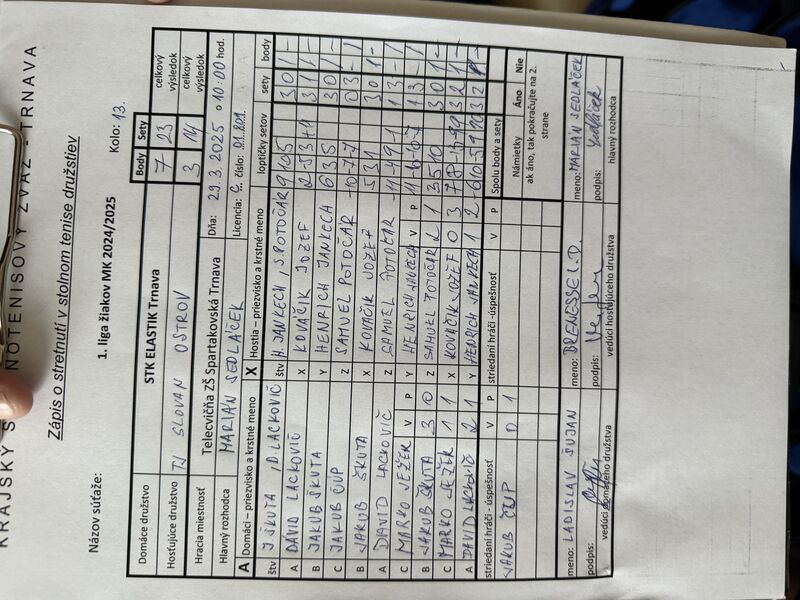 KRAJSKÝ S NOTENISOVÝ ZVÄZ - TRNAVA
Zápis o stretnutí v stolnom tenise družstiev
Názov súťaže: 1. liga žiakov MK 2024/2025 Kolo: 13.
Body Sety
Domáce družstvo STK ELASTIK Trnava 7 23 celkový výsledok
Hosťujúce družstvo TJ SLOVAN OSTROV 3 14 celkový výsledok
Hracia miestnosť Telecvičňa ZŠ Spartakovská Trnava Dňa: 29.3.2025 o 10:00 hod.
Hlavný rozhodca MARIÁN SEDLÁČEK Licencia: C. číslo:
A Domáci – priezvisko a krstné meno X Hostia – priezvisko a krstné meno loptičky setov sety body
štv J. ŠKUTA, D. LACKOVIČ štv H. JANKECH, S. POTOČÁR 9 10 5 3 0 1 -
A DAVID LACKOVIČ X KOVÁČIK JOZEF 3 1 1 -
B JAKUB ŠKUTA Y HENRICH JANKECH 6 3 5 3 0 1 -
C JAKUB ČUP Z SAMUEL POTOČÁR -10 -7 -7 0 3 - 1
B JAKUB ŠKUTA X KOVÁČIK JOZEF 5 3 1 3 0 1 -
A DAVID LACKOVIČ Z SAMUEL POTOČÁR 1 3 - 1
C MARKO JEŽEK V P Y HENRICH JANKECH V P 1 3 - 1
B JAKUB ŠKUTA 3 0 Z SAMUEL POTOČÁR 2 1 3 5 10 3 0 1 -
C MARKO JEŽEK 1 1 X KOVÁČIK JOZEF 0 3 3 2 1 -
A DAVID LACKOVIČ 2 1 Y HENRICH JANKECH 1 2 3 2 1 -
striedaní hráči -úspešnosť V P striedaní hráči -úspešnosť V P Spolu body a sety
JAKUB ČUP 0 1
Námietky Áno Nie
ak áno, tak pokračujte na 2. strane
meno: LADISLAV ŠUJAN meno: meno: MARIÁN SEDLÁČEK
podpis: podpis: podpis: Sedláček
vedúci domáceho družstva vedúci hosťujúceho družstva hlavný rozhodca